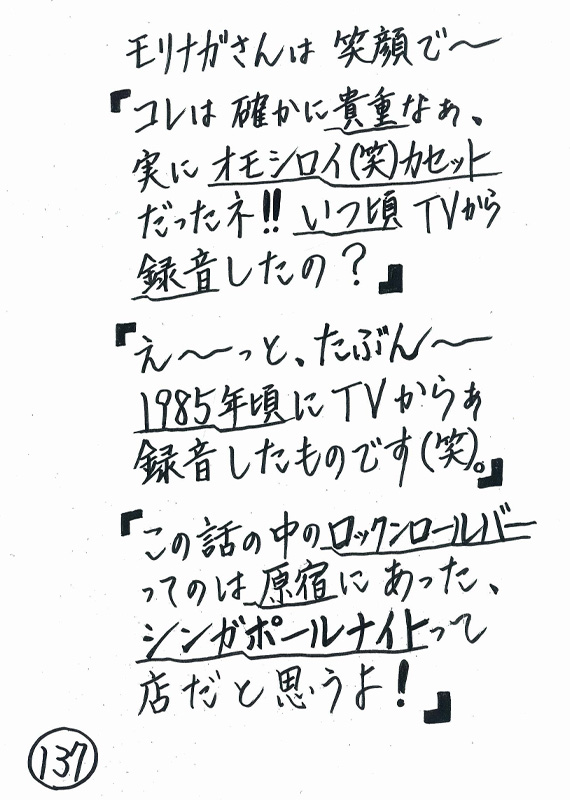 モリナガさんは 笑顔で〜
『コレは 確かに貴重なぁ、
実に オモシロイ(笑)カセット
だったネ!! いつ頃 TVから
録音したの？』
『え〜っと、たぶん〜
1985年頃に TVからぁ
録音したものです(笑)。』
『この話の中のロックンロールバー
ってのは 原宿に あった、
シンガポールナイトって
店だと思うよ！』
137